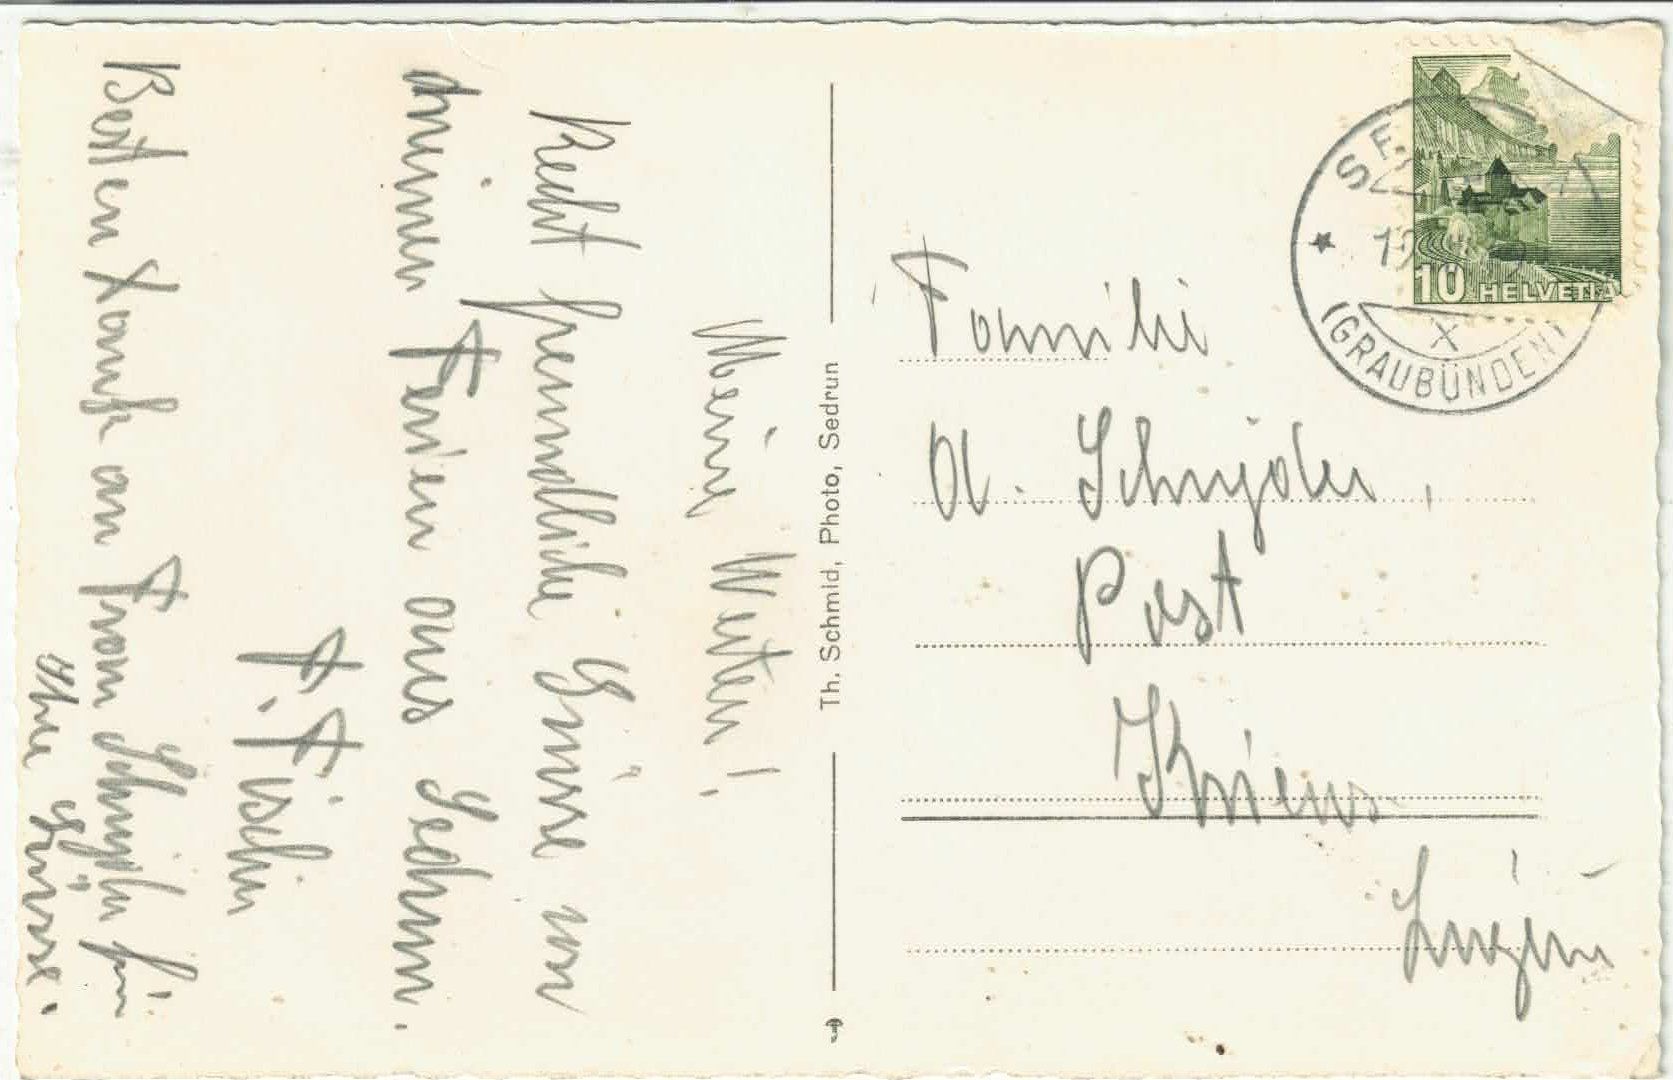 Meine Werten!
Recht freundliche Grüsse von
meinen Ferien aus Sedrun.
F. Fischer
Besten Dank an Frau Schnyder für
ihre Grüsse.
Th. Schmid, Photo, Sedrun
10 HELVETIA
(GRAUBÜNDEN)
Familie
A. Schnyder,
Post
Kriens
Luzern